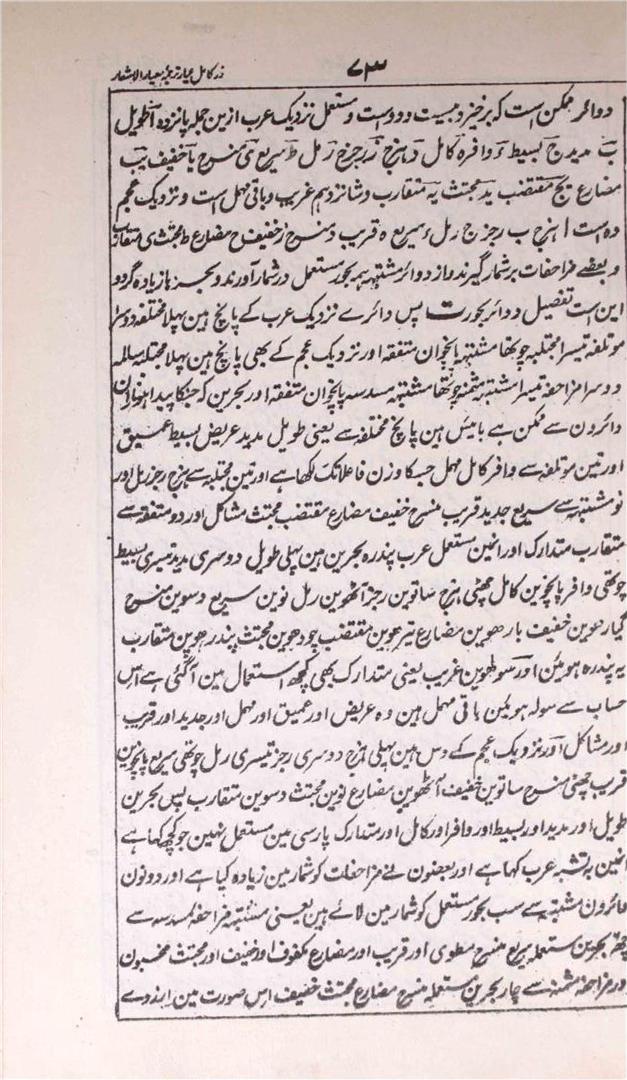 ۷۳
زر کامل عیار ترجمہ معیار الاشعار
دوائر ممکن است کہ برخیزد بیست و دو است و مستعمل نزدیک عرب ازین جملہ پانزدہ آ طویل
ب مدید ج بسیط ء وافر ہ کامل و ہزج ز رجز ح رمل ط سریع ی منسرح یا خفیف یب
مضارع یج مقتضب ید مجتث یہ متقارب و شانزدہم غریب و باقی مہمل است و نزدیک عجم
دہ است ا ہزج ب رجز ج رمل ء سریع ہ قریب و منسرح ز خفیف ح مضارع ط مجتث ی متقارب
و بعضے مزاحفات بر شمار گیرند و از دوائر مشتبہہ ہمہ بحور مستعمل در شمار آورند و بحر ہا زیادہ گردد
این است تفصیل دوائر بحور ت پس دائرے نزدیک عرب کے پانچ ہین پہلا مختلفہ دوسرا
موتلفہ تیسرا مجتلبہ چوتھا مشتبہہ پانچوان متفقہ اور نزدیک عجم کے بھی پانچ ہین پہلا مجتلبہ سالمہ
دوسرا مزاحفہ تیسرا مشتبہہ مثمنہ چوتھا مشتبہہ مسدسہ پانچوان متفقہ اور بحرین کہ جنکا پیدا ہونا ان
دائرون سے ممکن ہے بائیس ہین پانچ مختلفہ سے یعنی طویل مدید عریض بسیط عمیق
اور تین موتلفہ سے وافر کامل مہمل جسکا وزن فاعلاتک لکھا ہے اور تین مجتلبہ سے ہزج رجز رمل اور
نو مشتبہہ سے سریع جدید قریب منسرح خفیف مضارع مقتضب مجتث مشاکل اور دو متفقہ سے
متقارب متدارک اور انمین مستعمل عرب پندرہ بحرین ہین پہلی طویل دوسری مدید تیسری بسیط
چوتھی وافر پانچوین کامل چھٹی ہزج ساتوین رجز آٹھوین رمل نوین سریع دسوین منسرح
گیارھوین خفیف بارھوین مضارع تیرھوین مقتضب چودھوین مجتث پندرھوین متقارب
یہ پندرہ ہوئین اور سولھوین غریب یعنی متدارک بھی کچھ استعمال مین آگئی ہے اس
حساب سے سولہ ہوئین باقی مہمل ہین وہ عریض اور عمیق اور مہمل اور جدید اور قریب
اور مشاکل اور نزدیک عجم کے دس ہین پہلی ہزج دوسری رجز تیسری رمل چوتھی سریع پانچوین
قریب چھٹی منسرح ساتوین خفیف آٹھوین مضارع نوین مجتث دسوین متقارب پس بحرین
طویل اور مدید اور بسیط اور وافر اور کامل اور متدارک پارسی مین مستعمل نہین جو کچھ کہا ہے
انمین بہ تشبہ عرب کہا ہے اور بعضون نے مزاحفات کو شمار مین زیادہ کیا ہے اور دونون
دائرون مشتبہہ سے سب بحور مستعمل کو شمار مین لائے ہین یعنی مشتبہہ مزاحفہ مسدسہ سے
چھہ بحرین مستعملہ سریع منسرح مطوی اور قریب اور مضارع مکفوف اور خفیف اور مجتث مخبون
اور مزاحفہ مثمنہ سے چار بحرین مستعملہ منسرح مضارع مجتث خفیف اس صورت مین ازروے